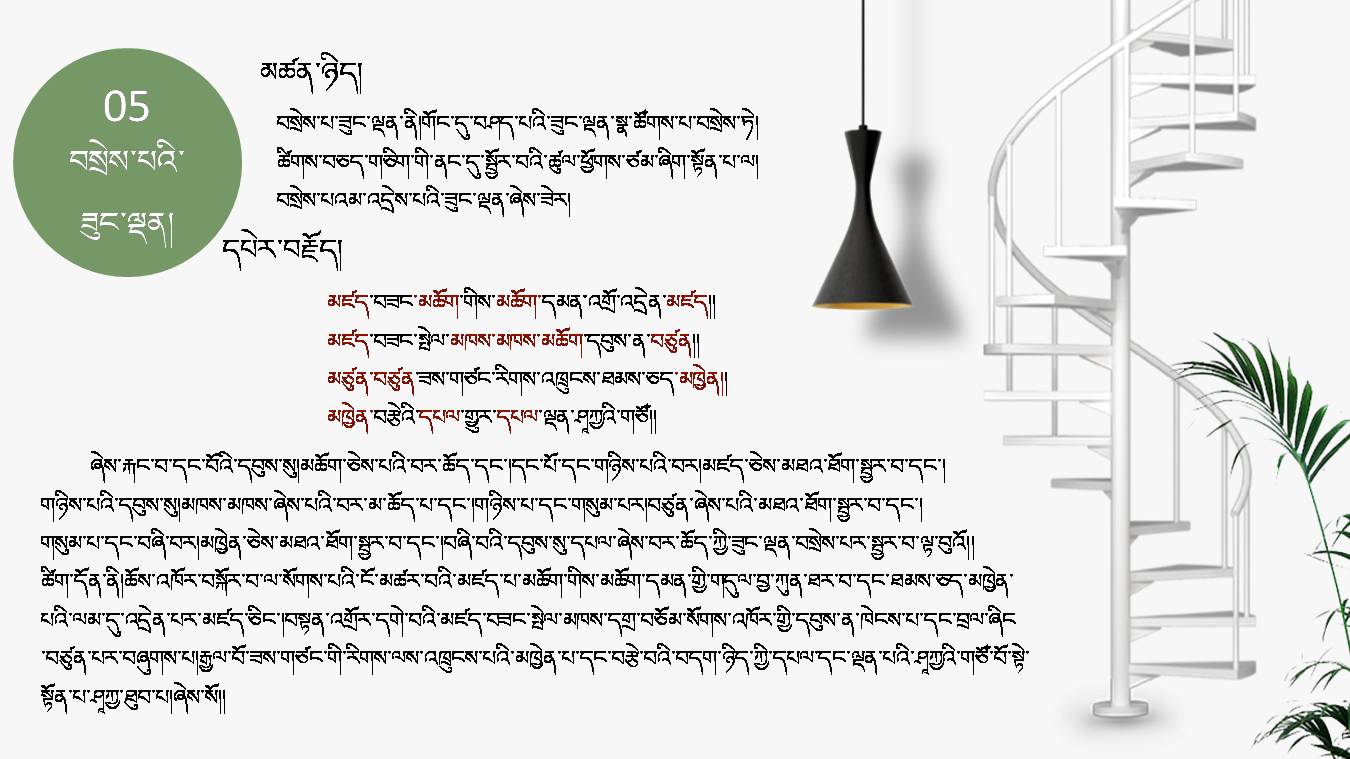 05
བསྲེས་པའི་
ཟུང་ལྡན།
མཚན་ཉིད།
བསྲེས་པ་ཟུང་ལྡན་ནི།གོང་དུ་བཤད་པའི་ཟུང་ལྡན་སྣ་ཚོགས་པ་བསྲེས་ཏེ།
ཚིགས་བཅད་གཅིག་གི་ནང་དུ་སྦྱོར་བའི་ཚུལ་ཕྱོགས་ཙམ་ཞིག་སྟོན་པ་ལ།
བསྲེས་པའམ་འདྲེས་པའི་ཟུང་ལྡན་ཞེས་ཟེར།
དཔེར་བརྗོད།
མཛད་བཟང་མཆོག་གིས་མཆོག་དམན་འགྲོ་འདྲེན་མཛད།།
མཛད་བཟང་སྤེལ་མཁས་མཁས་མཆོག་དབུས་ན་བཙུན།།
མཙུན་བཙུན་ཟས་གཙང་རིགས་འཁྲུངས་ཐམས་ཅད་མཁྱེན།།
མཁྱེན་བརྩེའི་དཔལ་གྱུར་དཔལ་ལྡན་ཤཱཀྱའི་གཙོ།།
ཞེས་རྐང་བ་དང་བོའི་དབུས་སུ།མཆོག་ཅེས་པའི་བར་ཆོད་དང་།དང་པོ་དང་གཉིས་པའི་བར།མཛད་ཅེས་མཐའ་ཐོག་སྦྱར་བ་དང་།
གཉིས་པའི་དབུས་སུ།མཁས་མཁས་ཞེས་པའི་བར་མ་ཆོད་པ་དང་།གཉིས་པ་དང་གསུམ་པར།བཙུན་ཞེས་པའི་མཐའ་ཐོག་སྦྱར་བ་དང་།
གསུམ་པ་དང་བཞི་བར།མཁྱེན་ཅེས་མཐའ་ཐོག་སྦྱར་བ་དང་།བཞི་བའི་དབུས་སུ་དཔལ་ཞེས་བར་ཆོད་ཀྱི་ཟུང་ལྡན་བསྲེས་པར་སྦྱར་བ་ལྟ་བུའོ།།
ཚིག་དོན་ནི།ཆོས་འཁོར་བསྐོར་བ་ལ་སོགས་པའི་ངོ་མཚར་བའི་མཛད་པ་མཆོག་གིས་མཆོག་དམན་གྱི་གདུལ་བྱ་ཀུན་ཐར་བ་དང་ཐམས་ཅད་མཁྱེན་
པའི་ལམ་དུ་འདྲེན་པར་མཛད་ཅིང་།བསྟན་འགྲོར་དགེ་བའི་མཛད་བཟང་སྤེལ་མཁས་དགྲ་བཅོམ་སོགས་འཁོར་གྱི་དབུས་ན་ཁེངས་པ་དང་བྲལ་ཞིང
་བཙུན་པར་བཞུགས་པ།རྒྱལ་བོ་ཟས་གཙང་གི་རིགས་ལས་འཁྲུངས་པའི་མཁྱེན་པ་དང་བརྩེ་བའི་བདག་ཉིད་ཀྱི་དཔལ་དང་ལྡན་པའི་ཤཱཀྱའི་གཙོ་བོ་སྟེ་
སྟོན་པ་ཤཱཀྱ་ཐུབ་པ།ཞེས་སོ།།